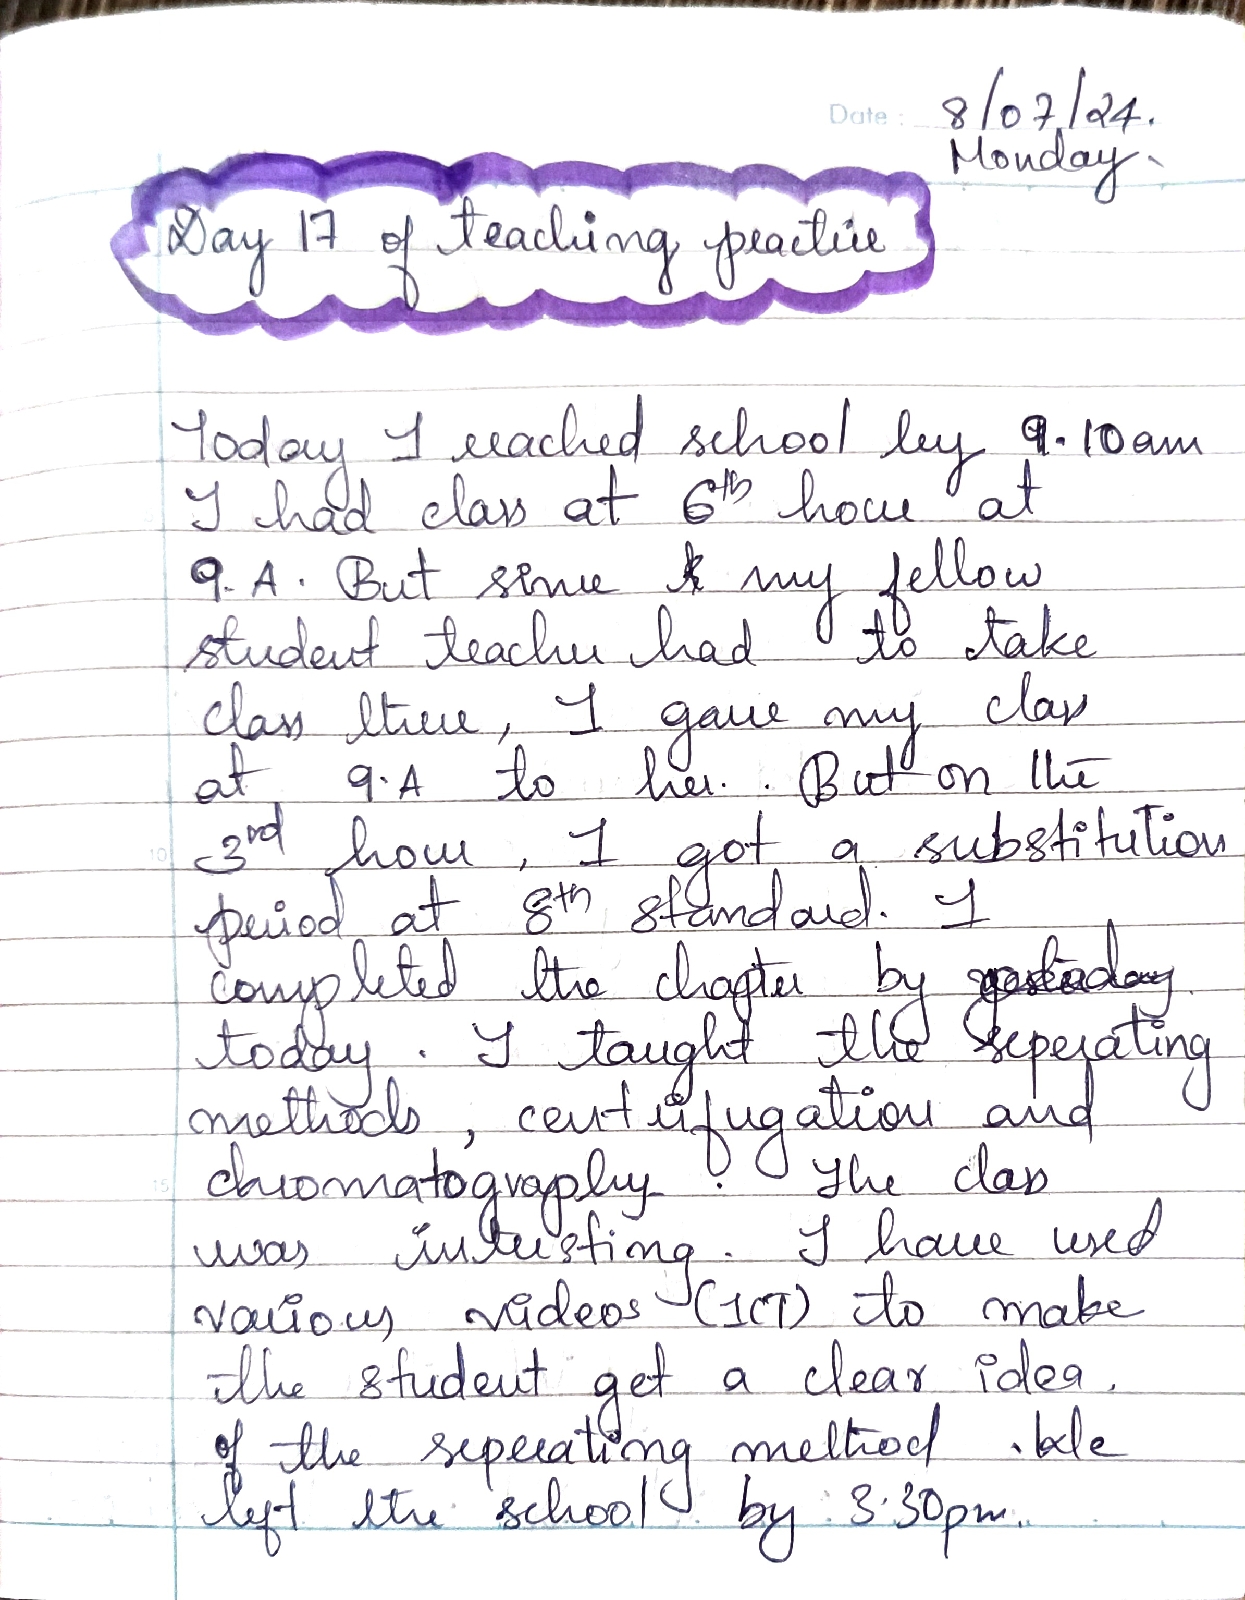 Date : 8/07/24.
Monday.
Day 17 of teaching practice
Today I reached school by 9.10am
I had class at 6th hour at
9.A. But since my fellow
student teacher had to take
class there, I gave my class
at 9.A to her. But on the
3rd hour, I got a substitution
10
period at 8th standard. I
completed the chapter by yesterday
today. I taught the seperating
methods, centrifugation and
chromatography. The class
15
was interesting. I have used
various videos (ICT) to make
the student get a clear idea.
of the seperating method. We
left the school by 3.30pm.